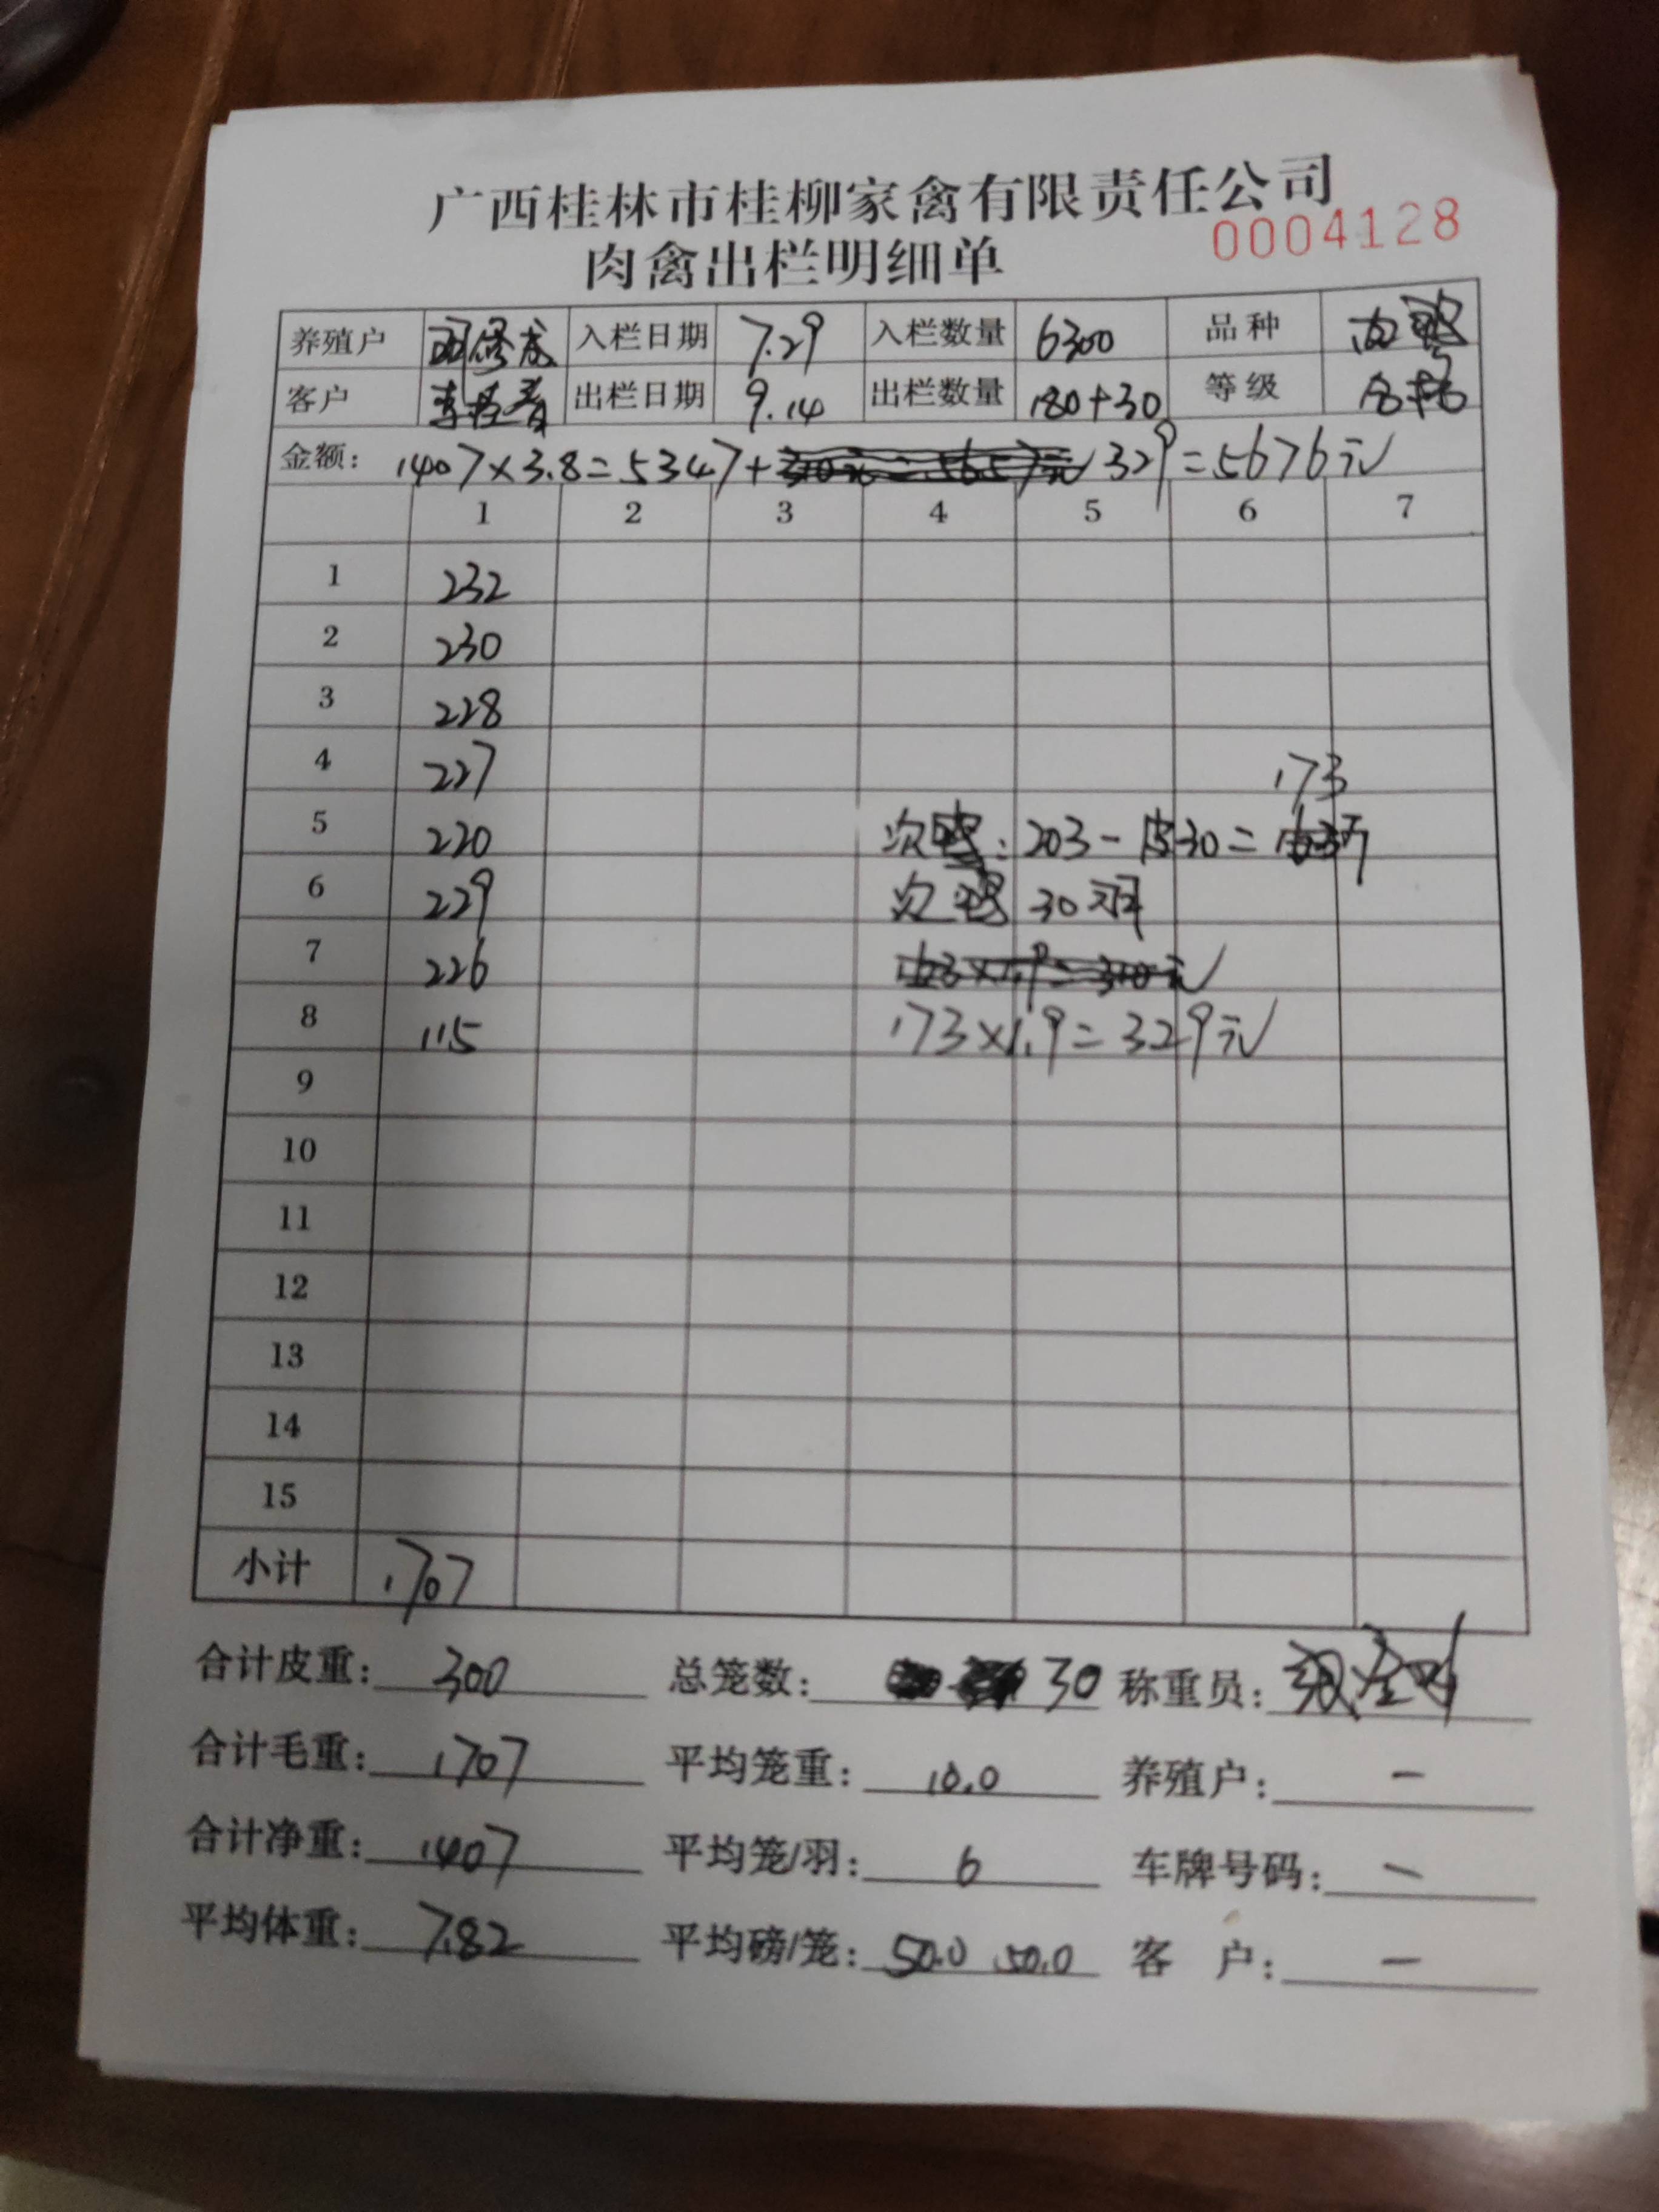 广西桂林市桂柳家禽有限责任公司
肉禽出栏明细单
0004128
养殖户 入栏日期 7.29 入栏数量 6300 品种 肉鸭
客户 出栏日期 9.14 出栏数量 180+30 等级 合格
金额: 1407×3.8=5347+310元=5657元 329=5676元
1 2 3 4 5 6 7
1 232
2 230
3 228
4 227 173
5 220 次鸭: 203-皮30=
6 229 次鸭 30羽
7 226 163×1.9=310元
8 115 173×1.9=329元
9
10
11
12
13
14
15
小计 1707
合计皮重: 300 总笼数: 30 称重员:
合计毛重: 1707 平均笼重: 10.0 养殖户: —
合计净重: 1407 平均笼/羽: 6 车牌号码: —
平均体重: 7.82 平均磅/笼: 50.0 50.0 客 户: —